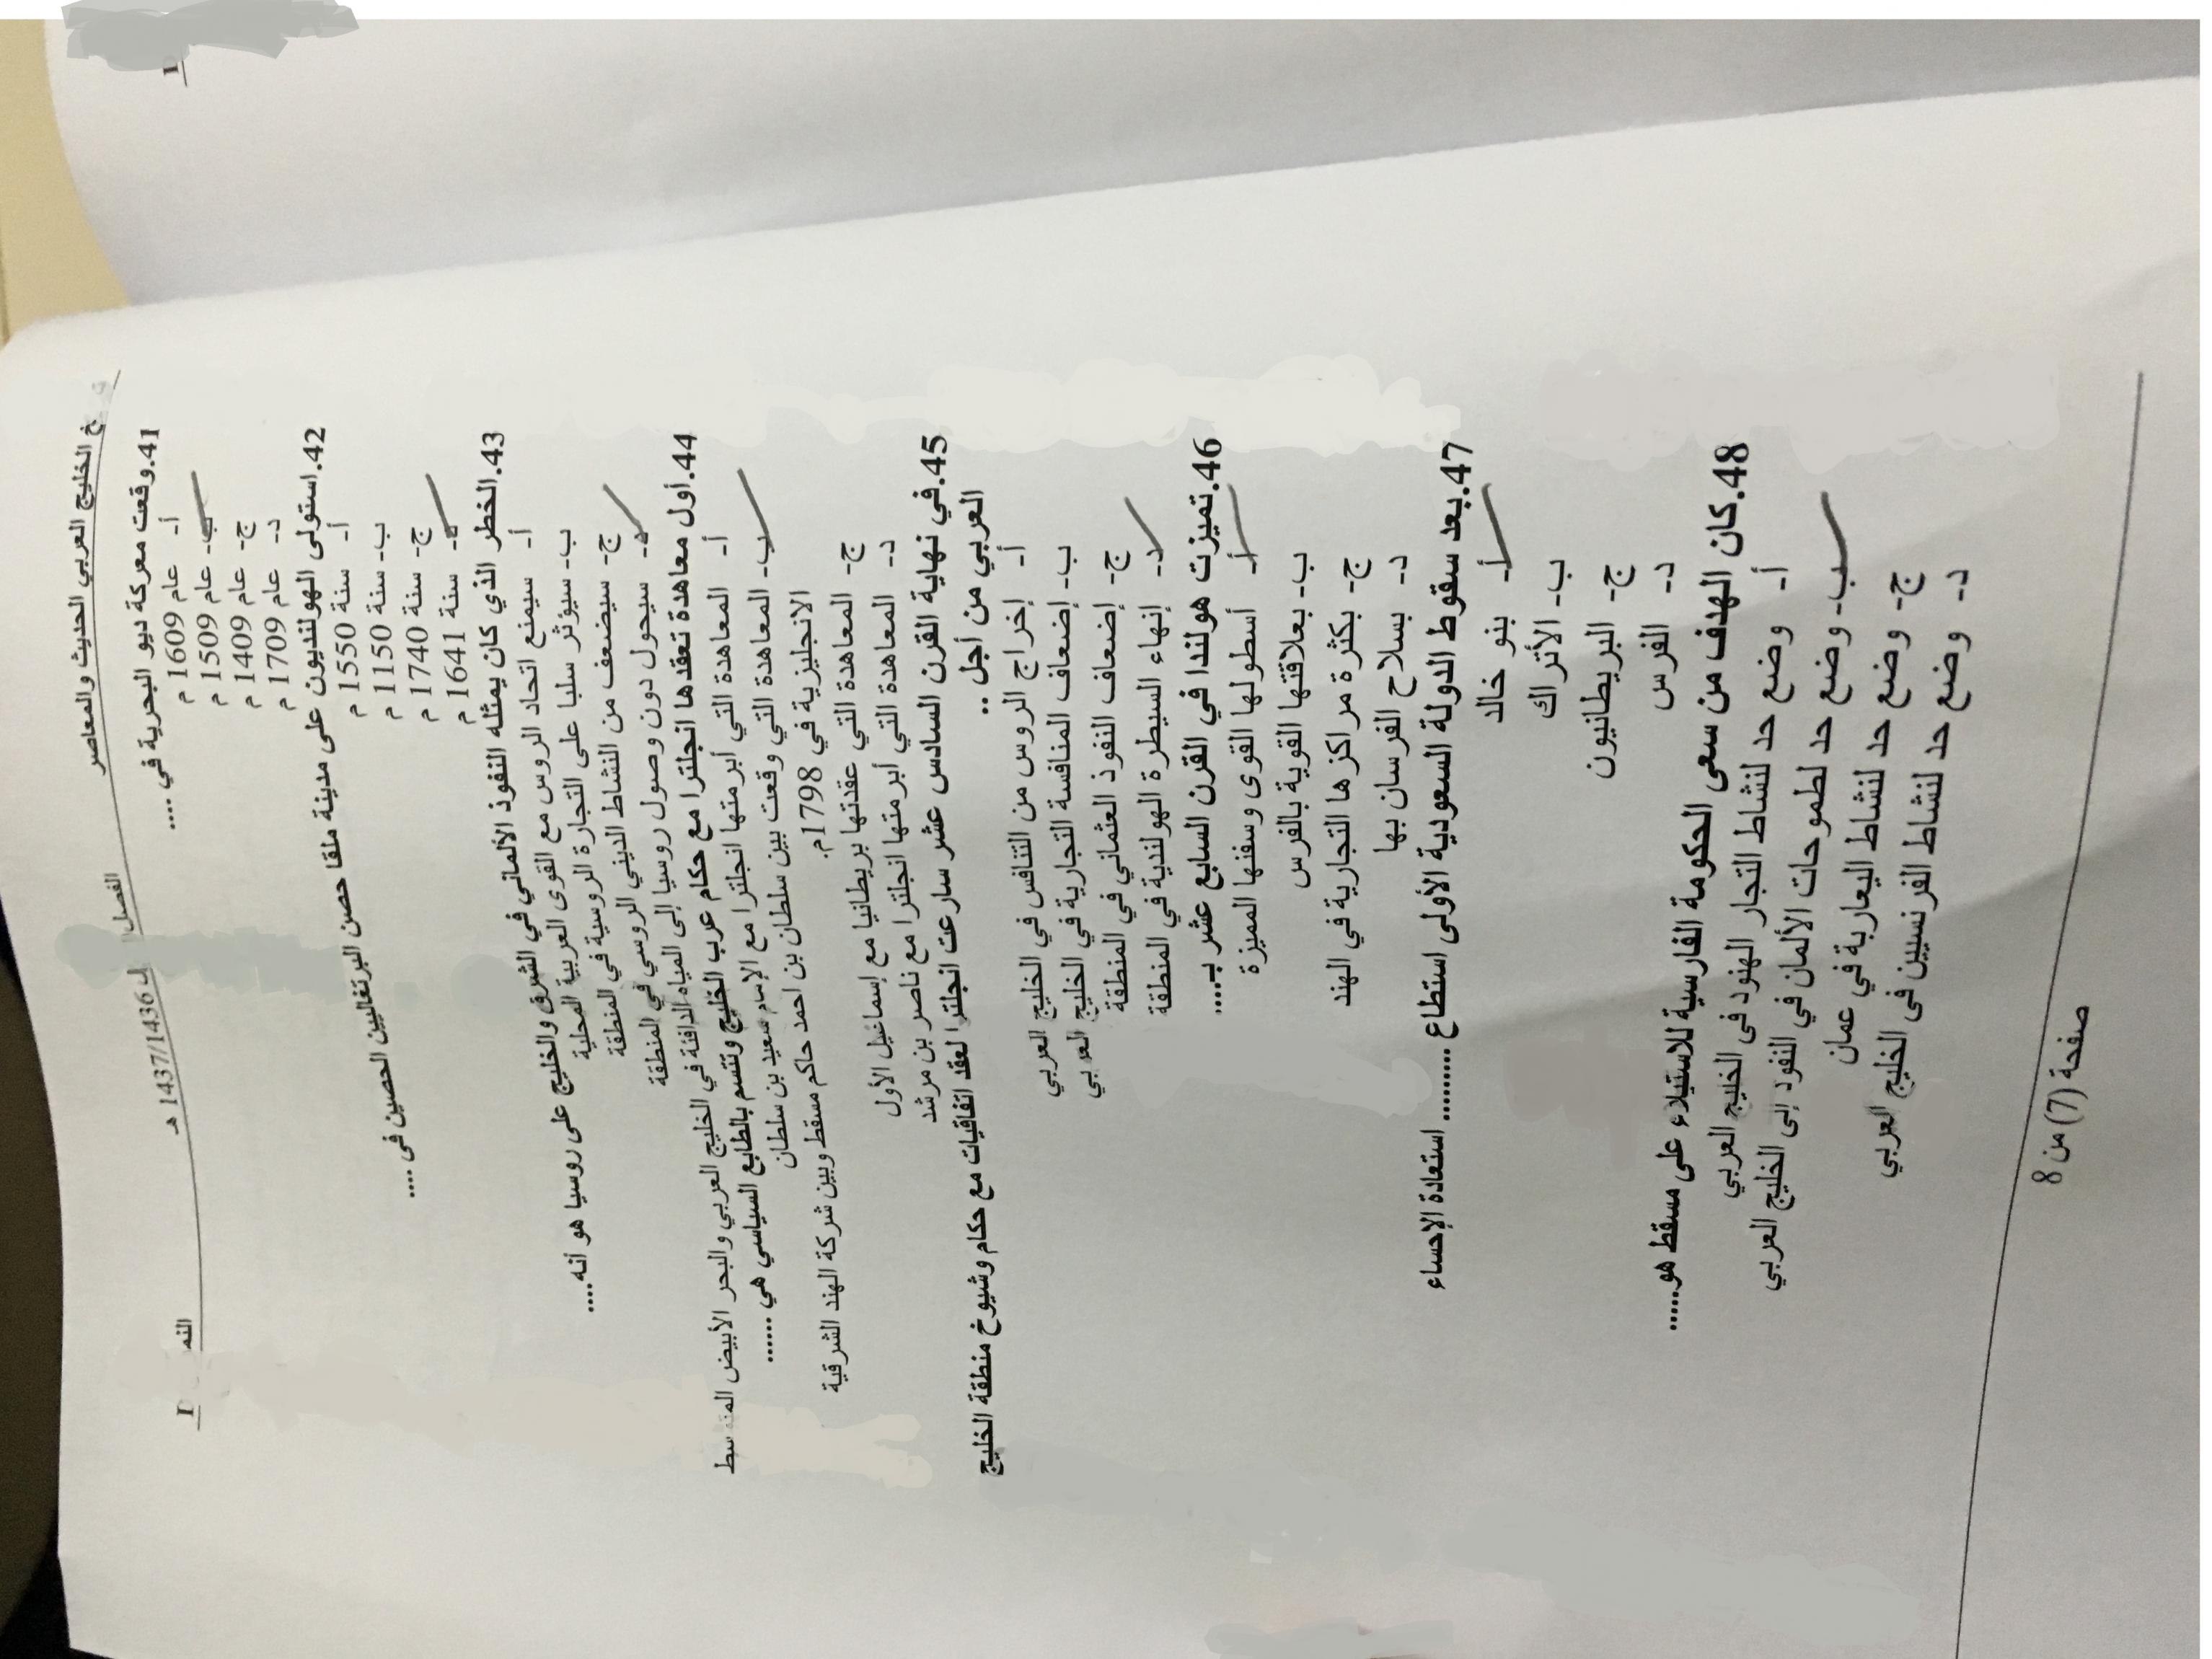 خ الخليج العربي الحديث والمعاصر
الفصل
1437/1436 هـ
41.وقعت معركة ديو البحرية في ....
أ- عام 1609 م
ب- عام 1509 م
ج- عام 1409 م
د- عام 1709 م
42.استولى الهولنديون على مدينة ملقا حصن البرتغاليين الحصين فى ....
أ- سنة 1550 م
ب- سنة 1150 م
ج- سنة 1740 م
د- سنة 1641 م
43.الخطر الذي كان يمثله النفوذ الألماني في الشرق والخليج على روسيا هو أنه....
أ- سيمنع اتحاد الروس مع القوى العربية المحلية
ب- سيؤثر سلبا على التجارة الروسية في المنطقة
ج- سيضعف من النشاط الديني الروسي في المنطقة
د- سيحول دون وصول روسيا إلى المياه الدافئة في الخليج العربي والبحر الأبيض المتوسط
44.أول معاهدة تعقدها انجلترا مع حكام عرب الخليج وتتسم بالطابع السياسي هي .......
أ- المعاهدة التي أبرمتها انجلترا مع الإمام سعيد بن سلطان
ب- المعاهدة التي وقعت بين سلطان بن احمد حاكم مسقط وبين شركة الهند الشرقية
الانجليزية في 1798م.
ج- المعاهدة التي عقدتها بريطانيا مع إسماعيل الأول
د- المعاهدة التي أبرمتها انجلترا مع ناصر بن مرشد
45.في نهاية القرن السادس عشر سارعت انجلترا لعقد اتفاقيات مع حكام وشيوخ منطقة الخليج
العربي من أجل ..
أ- إخراج الروس من التنافس في الخليج العربي
ب- إضعاف المنافسة التجارية في الخليج العربي
ج- إضعاف النفوذ العثماني في المنطقة
د- إنهاء السيطرة الهولندية في المنطقة
46.تميزت هولندا في القرن السابع عشر بـ....
أ- أسطولها القوى وسفنها المميزة
ب- بعلاقتها القوية بالفرس
ج- بكثرة مراكزها التجارية في الهند
د- بسلاح الفرسان بها
47.بعد سقوط الدولة السعودية الأولى استطاع ......... استعادة الإحساء
أ- بنو خالد
ب- الأتراك
ج- البريطانيون
د- الفرس
48.كان الهدف من سعى الحكومة الفارسية للاستيلاء على مسقط هو......
أ- وضع حد لنشاط التجار الهنود فى الخليج العربي
ب- وضع حد لطموحات الألمان في النفود إلى الخليج العربي
ج- وضع حد لنشاط اليعاربة في عمان
د- وضع حد لنشاط الفرنسيين فى الخليج العربي
صفحة (7) من 8